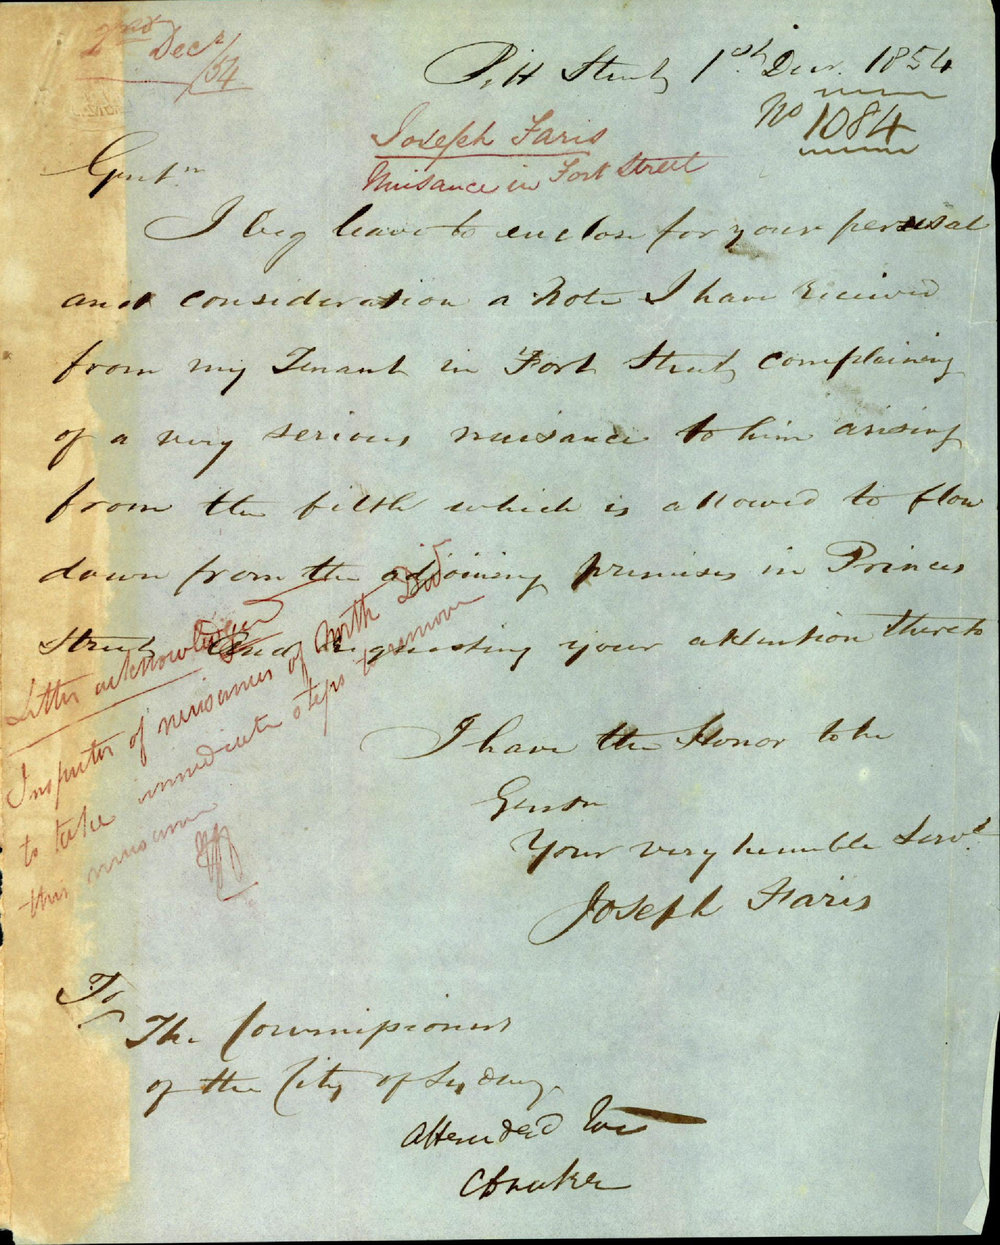 2nd Decr /54
Pitt Street 1st Decr. 1854
No 1084
Joseph Faris
Nuisance in Fort Street
Gentn
I beg leave to enclose for your perusal
and consideration a Note I have received
from my Tenant in Fort Street complaining
of a very serious nuisance to him arising
from the filth which is allowed to flow
down from the adjoining premises in Princes
Street and requesting your attention thereto
Letter acknowledged
Inspector of nuisances of North Did
to take immediate steps to remove
this nuisance
I have the Honor to be
Gentn
Your very humble Servt
Joseph Faris
To
The Commissioners
of the City of Sydney
Attended to